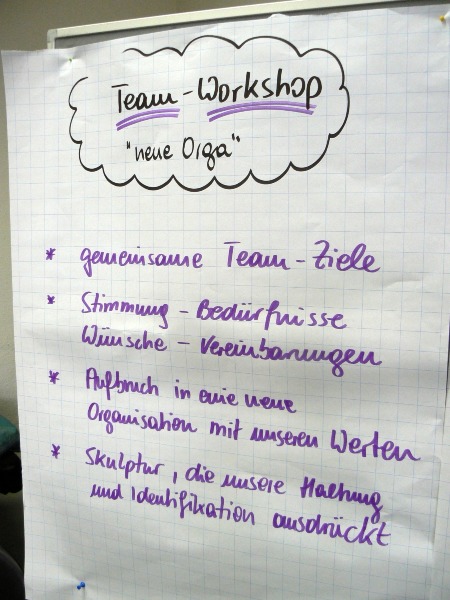 Team-Workshop
"neue Orga"
* gemeinsame Team-Ziele
* Stimmung - Bedürfnisse
Wünsche - Vereinbarungen
* Aufbruch in eine neue
Organisation mit unseren Werten
* Skulptur, die unsere Haltung
und Identifikation ausdrückt